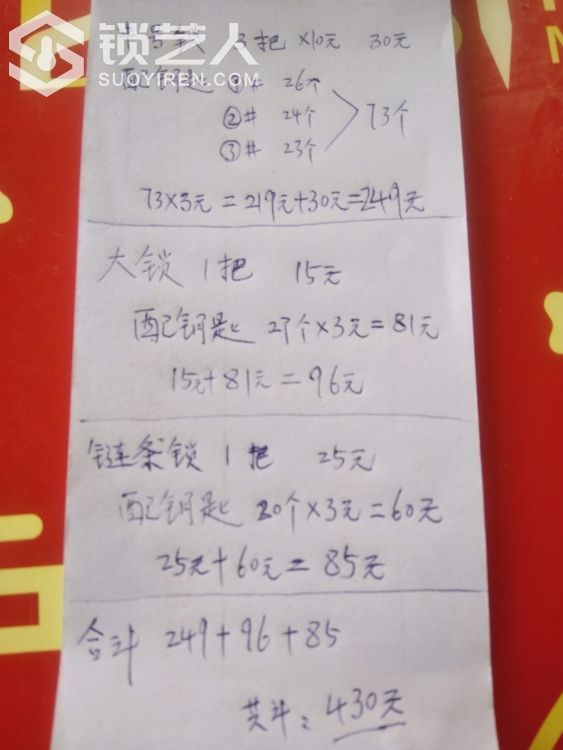 锁艺人
SUOYIREN.COM
号锁 3把 ×10元 30元
配钥匙 ①# 26个
②# 24个 73个
③# 23个
73×3元=219元+30元=249元
大锁 1把 15元
配钥匙 27个×3元=81元
15元+81元=96元
链条锁 1把 25元
配钥匙 20个×3元=60元
25元+60元=85元
合计 249+96+85
共计: 430元